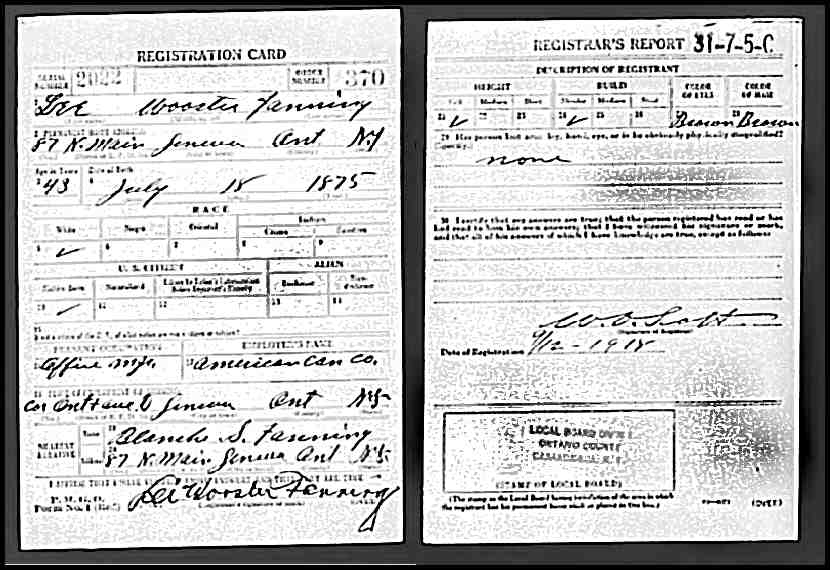 REGISTRATION CARD
SERIAL NUMBER 2022 ORDER NUMBER 370
Lee Wooster Fanning
PERMANENT HOME ADDRESS
87 N. Main Geneva Ont NY
Age in Years Date of Birth
43 July 18 1875
RACE
White Negro Oriental Indian
Citizen
U.S. CITIZEN ALIEN
Native Born Naturalized
PRESENT OCCUPATION EMPLOYER'S NAME
Office American Can Co.
Geneva Ont NY
NEAREST RELATIVE Name Blanche S. Fanning
Address 87 N. Main Geneva Ont NY
P. M. G. O.
Form No. 1 (Red) Lee Wooster Fanning
REGISTRAR'S REPORT 31-7-5-C
DESCRIPTION OF REGISTRANT
HEIGHT BUILD COLOR OF EYES COLOR OF HAIR
Tall Medium Short Slender Medium Stout
21 22 23 24 25 26 Brown Brown
29 Has person lost arm, leg, hand, eye, or is he obviously physically disqualified?
(Specify.)
none
30 I certify that my answers are true; that the person registered has read or has
had read to him his own answers; that I have witnessed his signature or mark,
and that all of his answers of which I have knowledge are true, except as follows:
Date of Registration 9/12-1918
LOCAL BOARD
ONTARIO COUNTY
(STAMP OF LOCAL BOARD)
(The stamp of the Local Board having jurisdiction of the area in which
the registrant has his permanent home shall be placed in this box.)
(OVER)